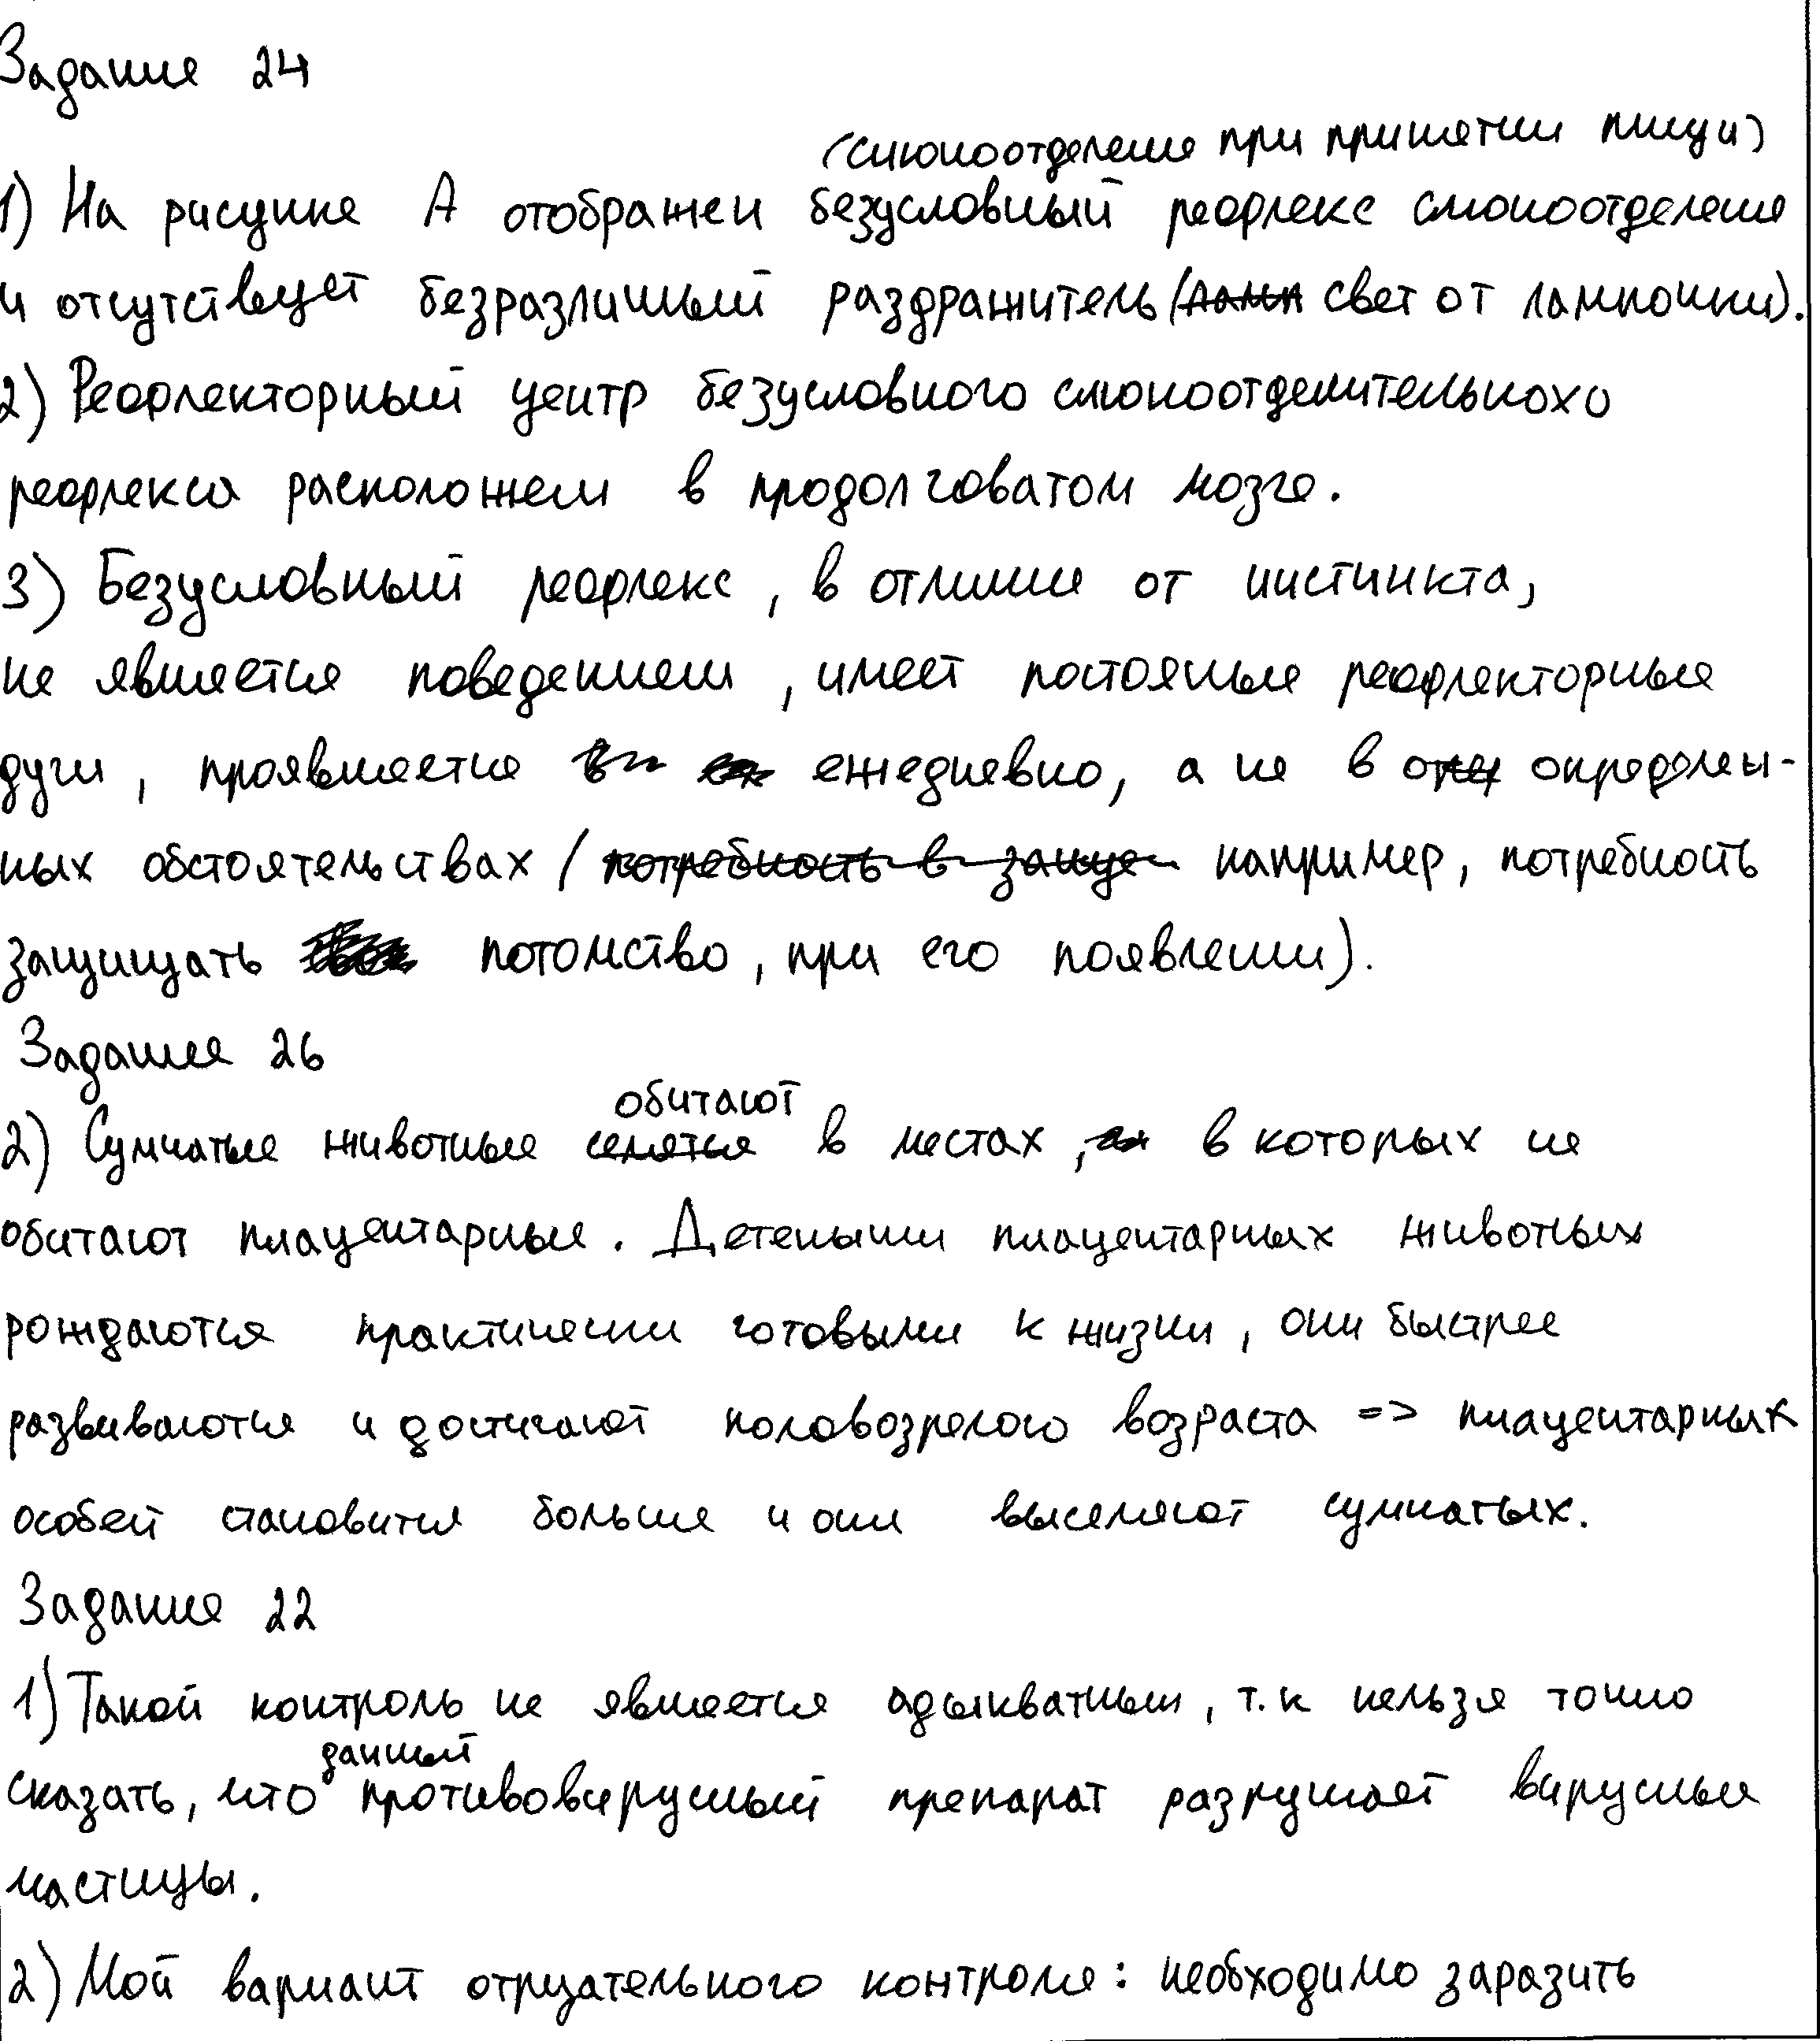 Задание 24
(слюноотделение при принятии пищи)
1) На рисунке А отображен безусловный рефлекс слюноотделение
и отсутствует безразличный раздражитель (ламп свет от лампочки).
2) Рефлекторный центр безусловного слюноотделительного
рефлекса расположен в продолговатом мозге.
3) Безусловный рефлекс, в отличие от инстинкта,
не является поведением, имеет постоянные рефлекторные
дуги, проявляется ежедневно, а не в определен-
ных обстоятельствах (потребность в защите например, потребность
защищать потомство, при его появлении).
Задание 26
обитают
2) Сумчатые животные селятся в местах, в которых не
обитают плацентарные. Детеныши плацентарных животных
рождаются практически готовыми к жизни, они быстрее
развиваются и достигают половозрелого возраста => плацентарных
особей становится больше и они выселяют сумчатых.
Задание 22
1) Такой контроль не является адыкватным, т.к нельзя точно
данный
сказать, что противовирусный препарат разрушает вирусные
частицы.
2) Мой вариант отрицательного контроля: необходимо заразить